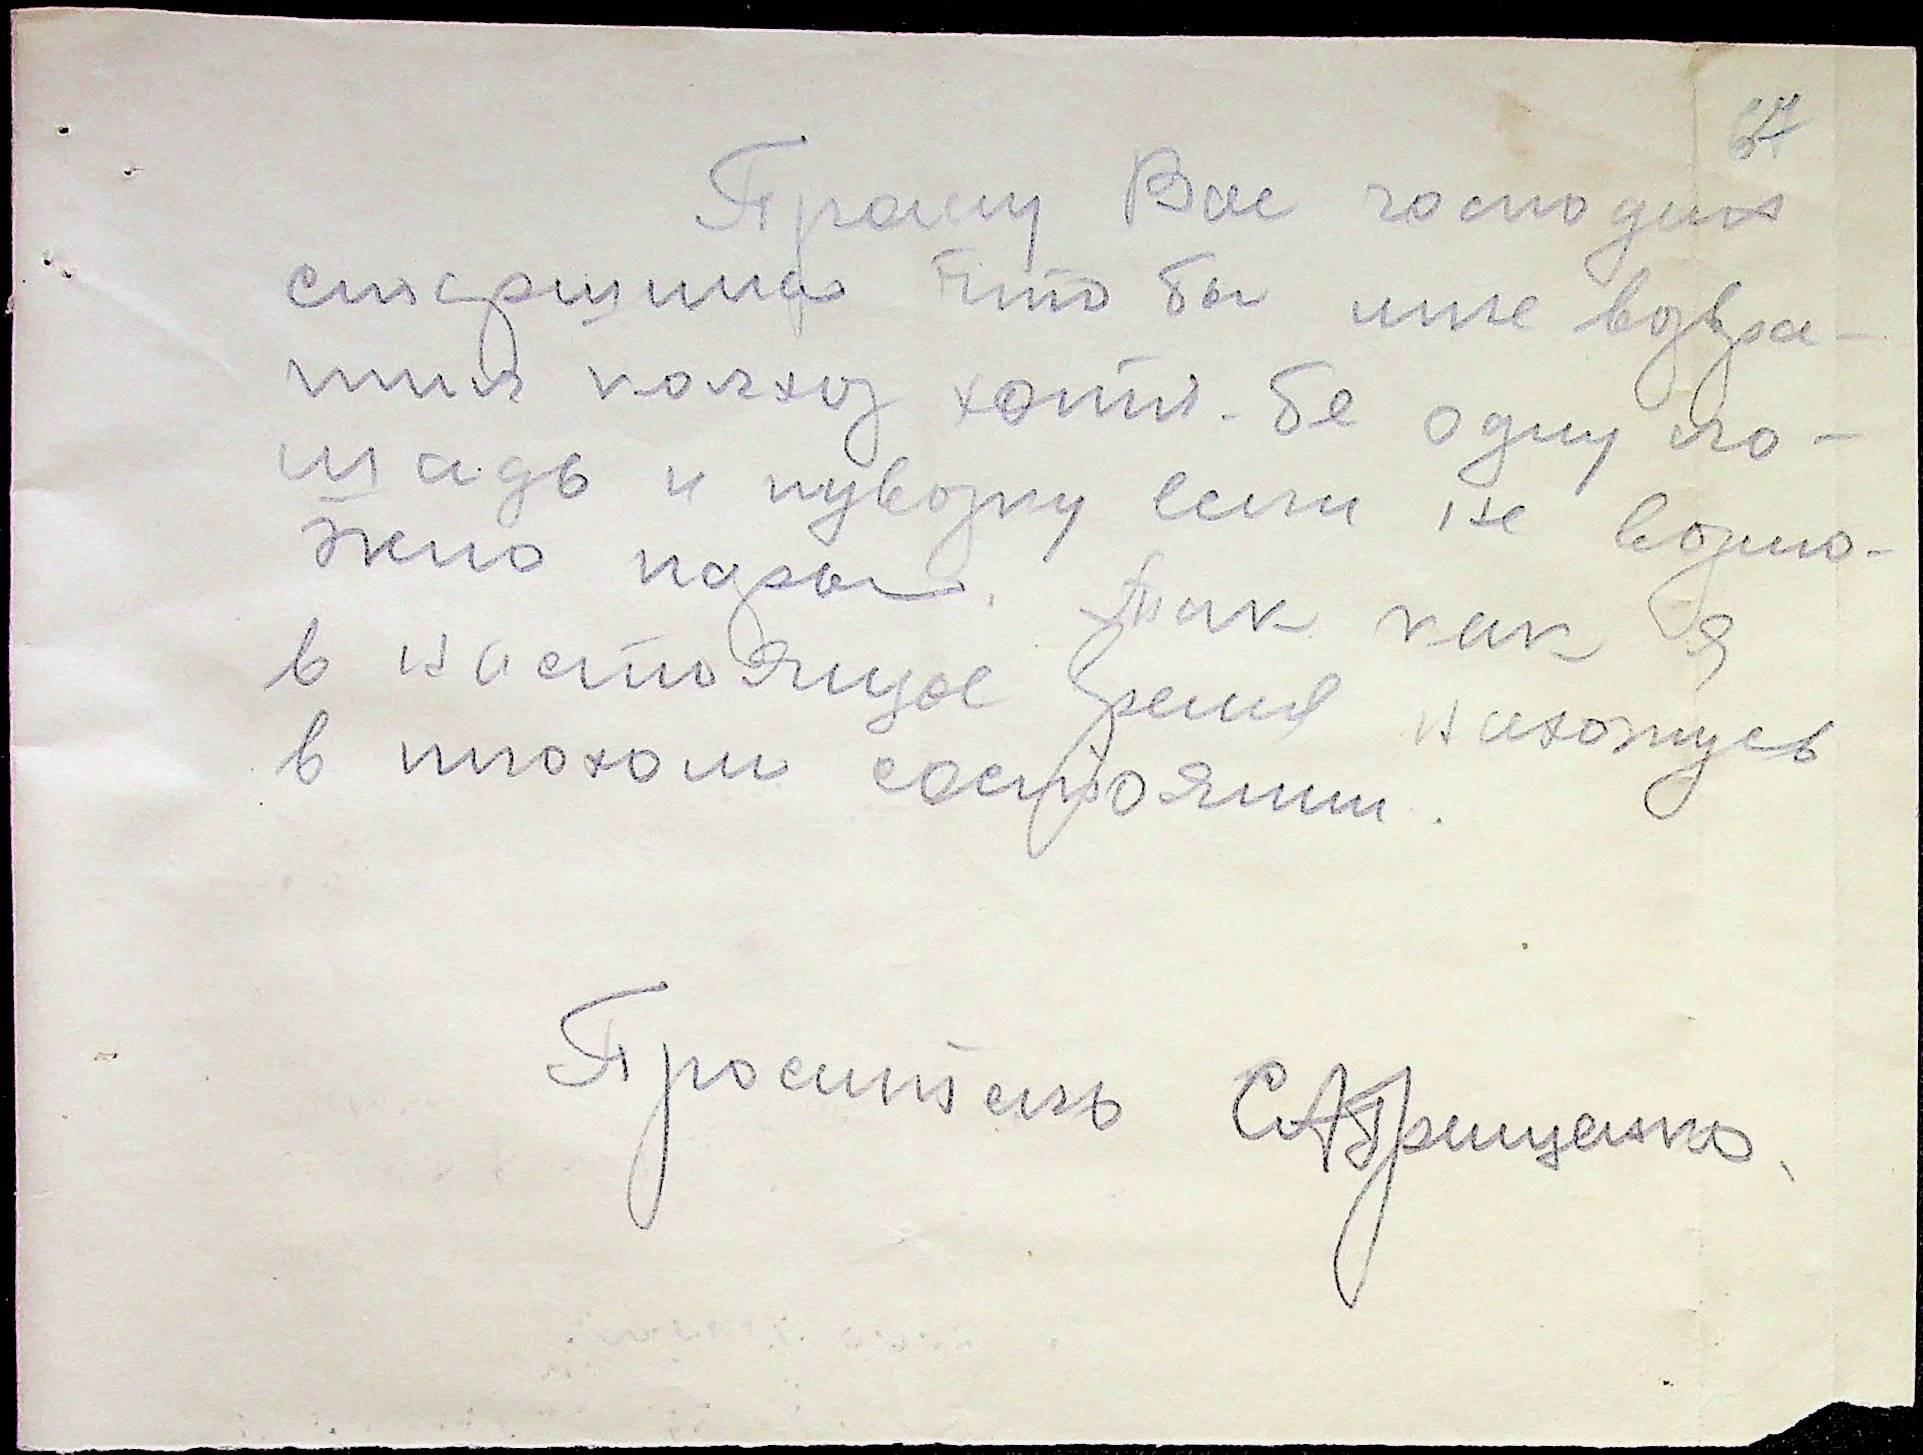 Прошу Вас господин
старшина что бы мне возвра-
тил колхоз хотя-бе одну ло-
шадь и пувозку если не возмо-
жно пары. Так как я
в настоящее время нахожусь
в плохом состоянии.
Проситель С. Грищенко.